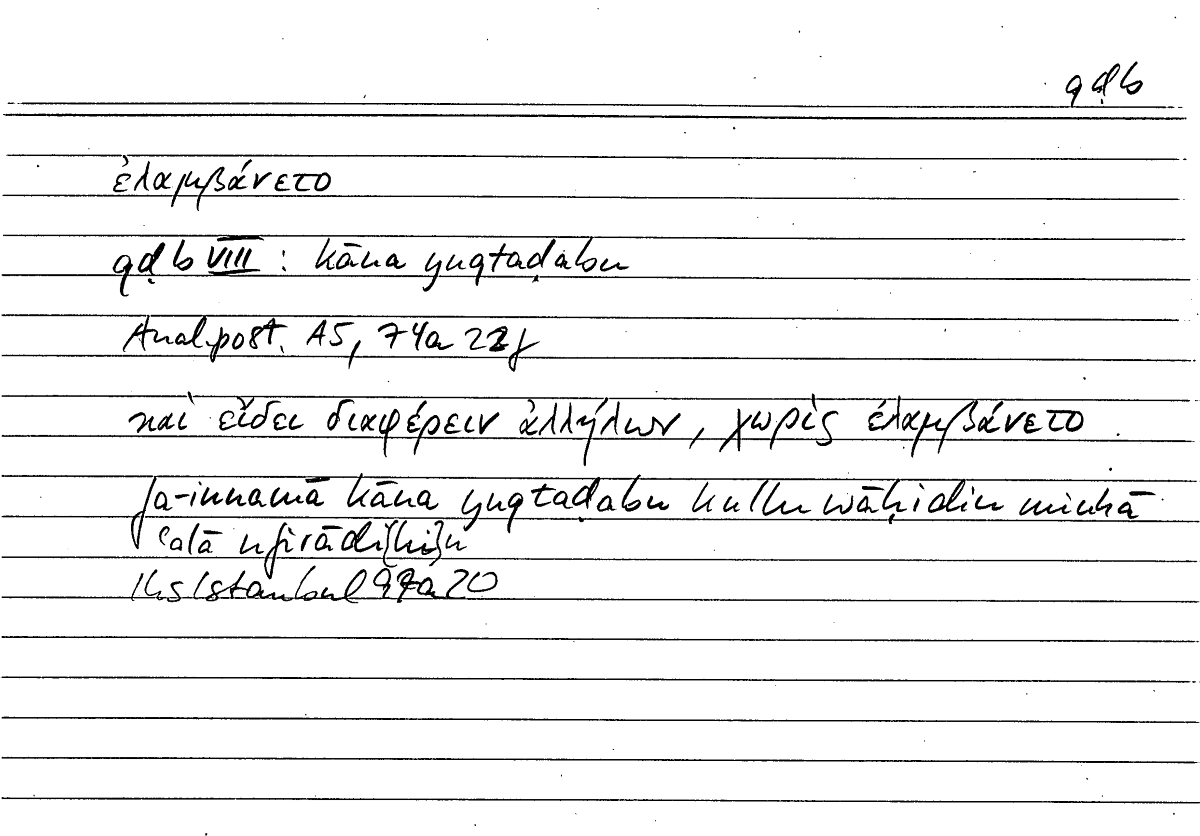 qḍb
ἐλαμβάνετο
qḍb VIII : kāna yuqtaḍabu
Anal.post. A5, 74a 22f
καὶ εἴδει διαφέρειν ἀλλήλων, χωρὶς ἐλαμβάνετο.
fa-innamā kāna yuqtaḍabu kullu wāḥidin minhā
ʿalā nfirādi{hi}n
Hs Istanbul 97a20